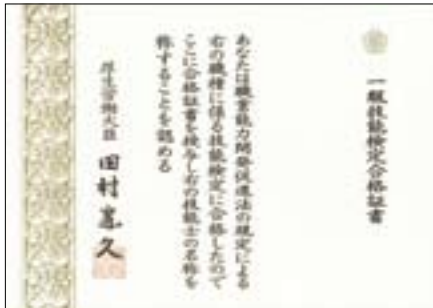 一級技能検定合格証書
あなたは職業能力開発促進法の規定による
右の職種に係る技能検定に合格したので
ここに合格証書を授与し右の技能士の名称を
称することを認める
厚生労働大臣 田村憲久